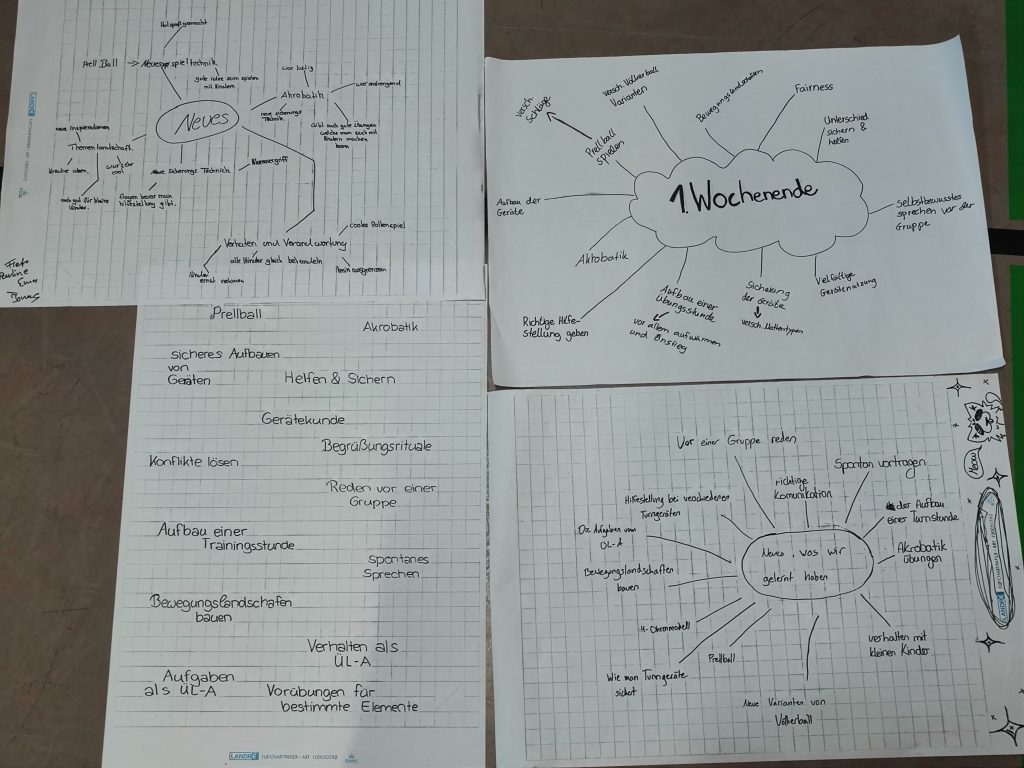 Hat spaß gemacht
Prell Ball → Neues spieltechnik
gute idee zum spielen
mit Kindern
war lustig
Akrobatik
war anstrengend
neue sicherungs
Technik.
Gibt auch gute Übungen
welche man auch mit
Kindern machen
kann
Neues
neue Inspirationen
Themenlandschaft.
Kreative ideen.
war sehr
cool
auch gut für kleine
Kinder.
Neue Sicherungs Technich
Klammergriff
fragen bevor man
hilfestellung gibt.
Verhalten und Verandwortung
cooles Rollenspiel
alle Kinder gleich behandeln
Kinder
ernst nehmen
Kein ausgrenzen
Pauline
Emma
Jonas
LANDRÉ
1. Wochenende
versch.
Schläge
Prellball
spielen
versch. Völkerball
Varianten
Bewegungslandschaften
Fairness
Unterschied
sichern &
helfen
Selbstbewusstes
sprechen vor der
Gruppe
Vielfältige
Gerätenutzung
Sicherung
der Geräte
versch. Mattentypen
Aufbau einer
Übungsstunde
vor allem aufwärmen
und Einstieg
Richtige Hilfe-
stellung geben
Akrobatik
Aufbau der
Geräte
Prellball
Akrobatik
sicheres Aufbauen
von
Geräten
Helfen & Sichern
Gerätekunde
Begrüßungsrituale
Konflikte lösen
Reden vor einer
Gruppe
Aufbau einer
Trainingsstunde
spontanes
Sprechen
Bewegungslandschafen
bauen
Verhalten als
ÜL-A
Aufgaben
als ÜL-A
Vorübungen für
bestimmte Elemente
LANDRÉ FLIPCHART-PAPIER • ART. 100050592
Neues, was wir
gelernt haben
Vor einer Gruppe reden
richtige
Komunikation
Spontan vortragen
der Aufbau
einer Turnstunde
Akrobatik
übungen
verhalten mit
kleinen Kinder
Neue Varianten von
Völkerball
Prellball
Wie man Turngeräte
sichert
4-Ohrenmodell
Bewegungslandschaften
bauen
Die Aufgaben vom
ÜL-A
Hilfestellung bei verschiedenen
Turngeräten
Meow
LANDRÉ